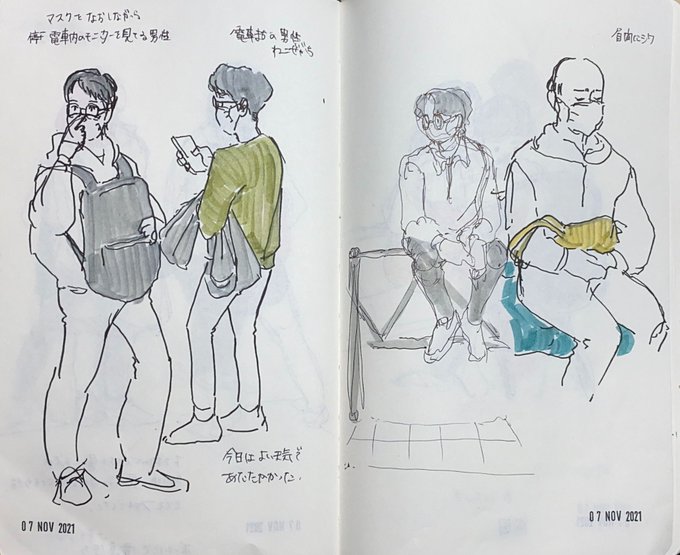 マスクをなおしながら
電車内のモニターを見てる男性
電車待の男性
ねこぜがち
今日はよい天気で
あたたかかった.
07 NOV 2021
07 NOV 2021